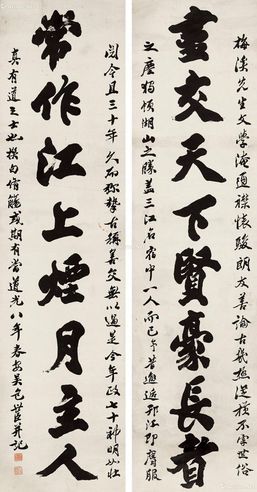 盡交天下賢豪長者
梅溪先生文學淹通襟懷駿朗友善論古不染世俗
之塵獨領湖山之勝蓋三江名宿中一人而已昔邂逅即膺服
閱今且三十年久而稱摯古稱善交無以過是今年政七十神明如壯
常作江上煙月主人
真有道之士也撰句侑觴或期有當道光八年春安吳包世臣并記